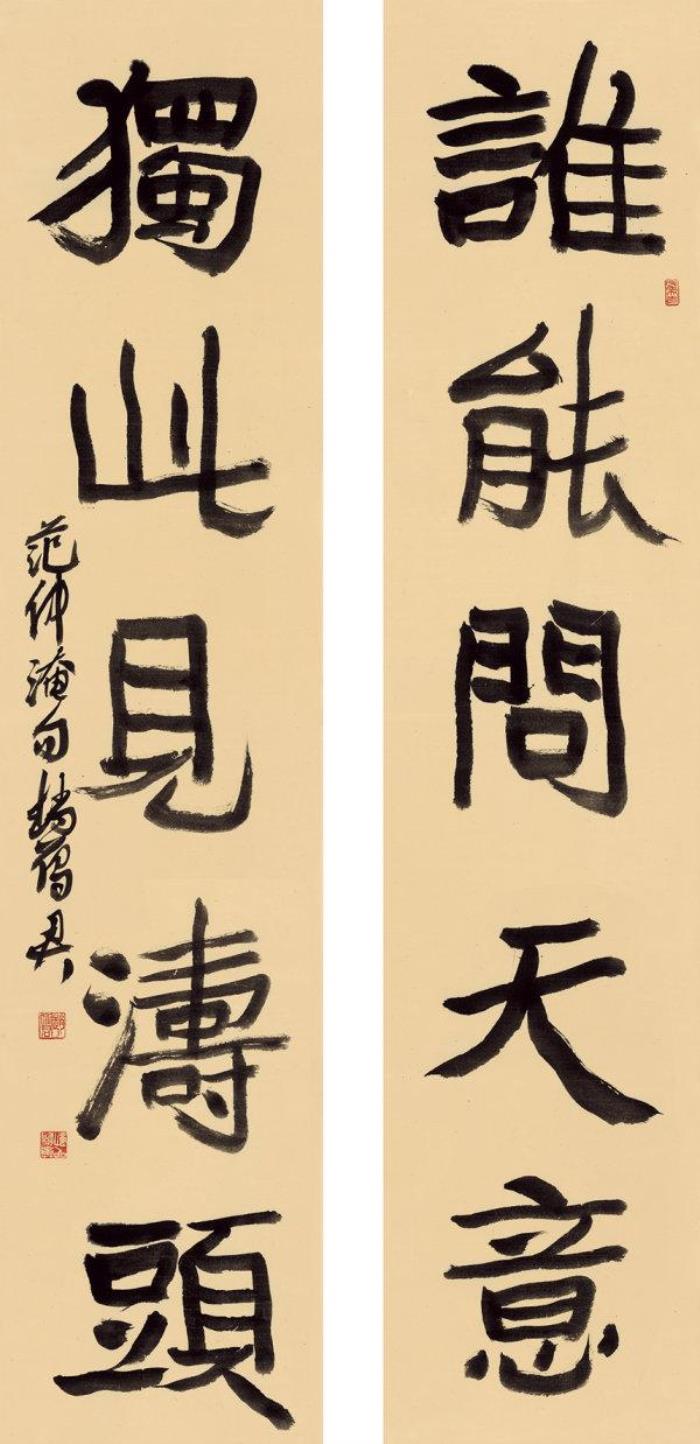 誰能問天意
獨此見濤頭
范仲淹句